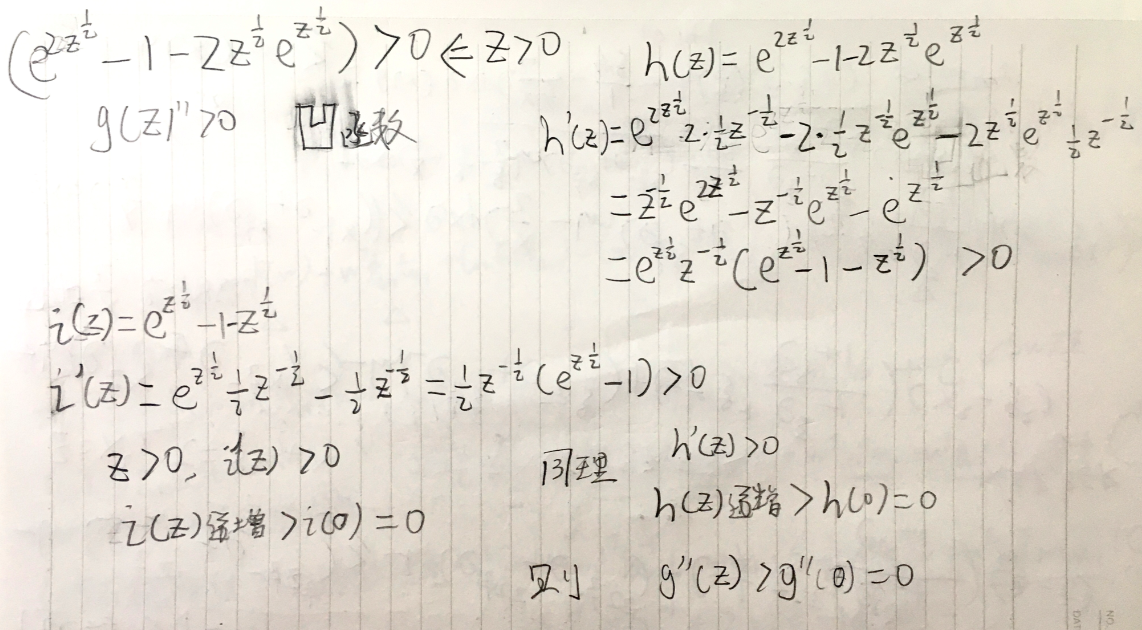 (e^{2z^{\frac{1}{2}}} - 1 - 2z^{\frac{1}{2}}e^{z^{\frac{1}{2}}}) > 0 ⇐ z > 0
g(z)'' > 0 凹函数
h(z) = e^{2z^{\frac{1}{2}}} - 1 - 2z^{\frac{1}{2}}e^{z^{\frac{1}{2}}}
h'(z) = e^{2z^{\frac{1}{2}}} · 2 · \frac{1}{2}z^{-\frac{1}{2}} - 2 · \frac{1}{2}z^{-\frac{1}{2}}e^{z^{\frac{1}{2}}} - 2z^{\frac{1}{2}}e^{z^{\frac{1}{2}}}\frac{1}{2}z^{-\frac{1}{2}}
= z^{-\frac{1}{2}}e^{2z^{\frac{1}{2}}} - z^{-\frac{1}{2}}e^{z^{\frac{1}{2}}} - e^{z^{\frac{1}{2}}}
= e^{z^{\frac{1}{2}}}z^{-\frac{1}{2}}(e^{z^{\frac{1}{2}}} - 1 - z^{\frac{1}{2}}) > 0
i(z) = e^{z^{\frac{1}{2}}} - 1 - z^{\frac{1}{2}}
i'(z) = e^{z^{\frac{1}{2}}}\frac{1}{2}z^{-\frac{1}{2}} - \frac{1}{2}z^{-\frac{1}{2}} = \frac{1}{2}z^{-\frac{1}{2}}(e^{z^{\frac{1}{2}}} - 1) > 0
z > 0, i'(z) > 0
i(z)递增 > i(0) = 0
同理 h'(z) > 0
h(z)递增 > h(0) = 0
则 g''(z) > g''(0) = 0